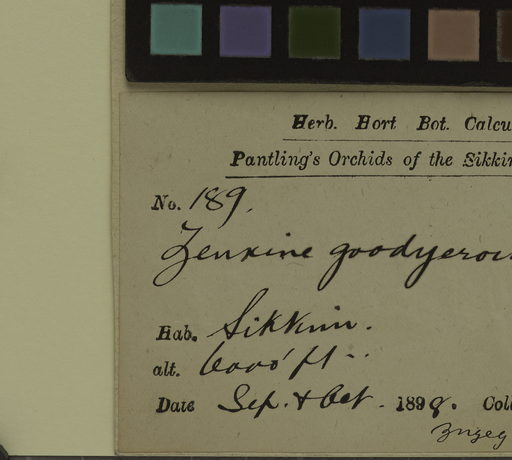 Herb. Hort Bot. Calcu
Pantling's Orchids of the Sikkim
No. 189.
Zeuxine goodyeroi
Hab. Sikkim.
alt. 6000' ft
Date Sep. & Oct. 1898. Coll